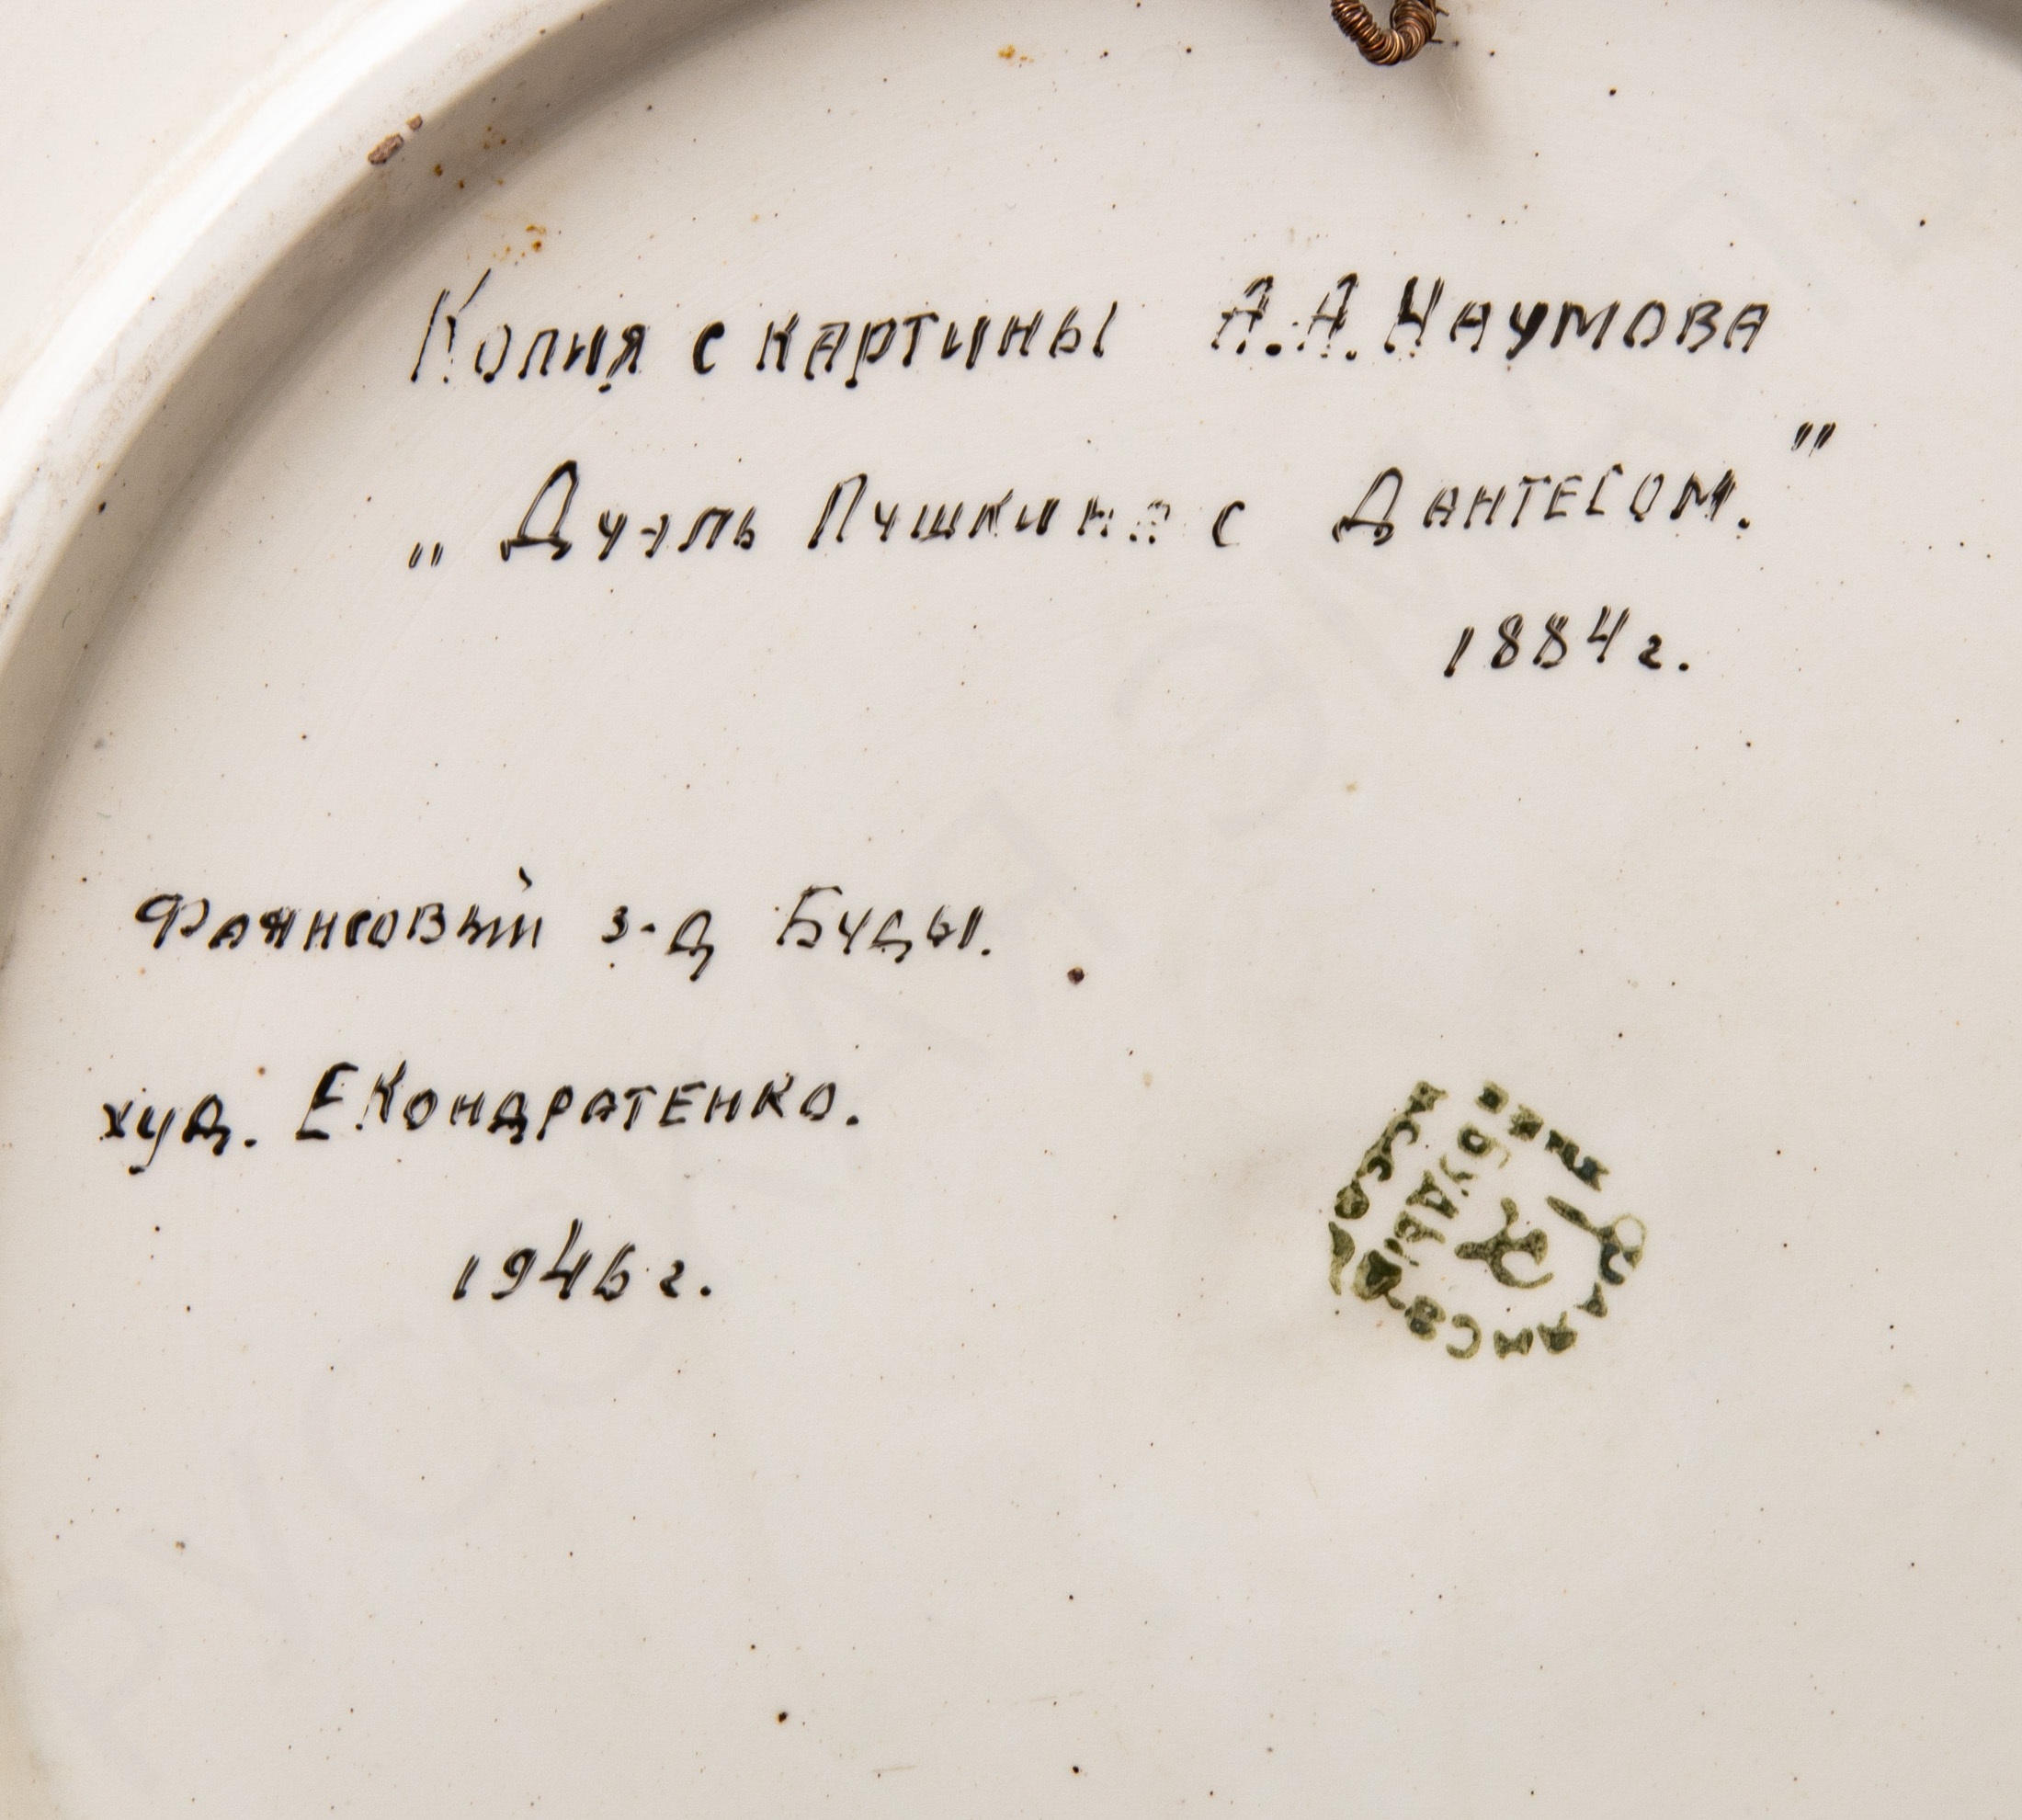 Копия с картины А.А.Наумова
„Дуэль Пушкина с Дантесом."
1884г.
Фаянсовый з-д Буды.
худ. Е.Кондратенко.
1946г.
Буды